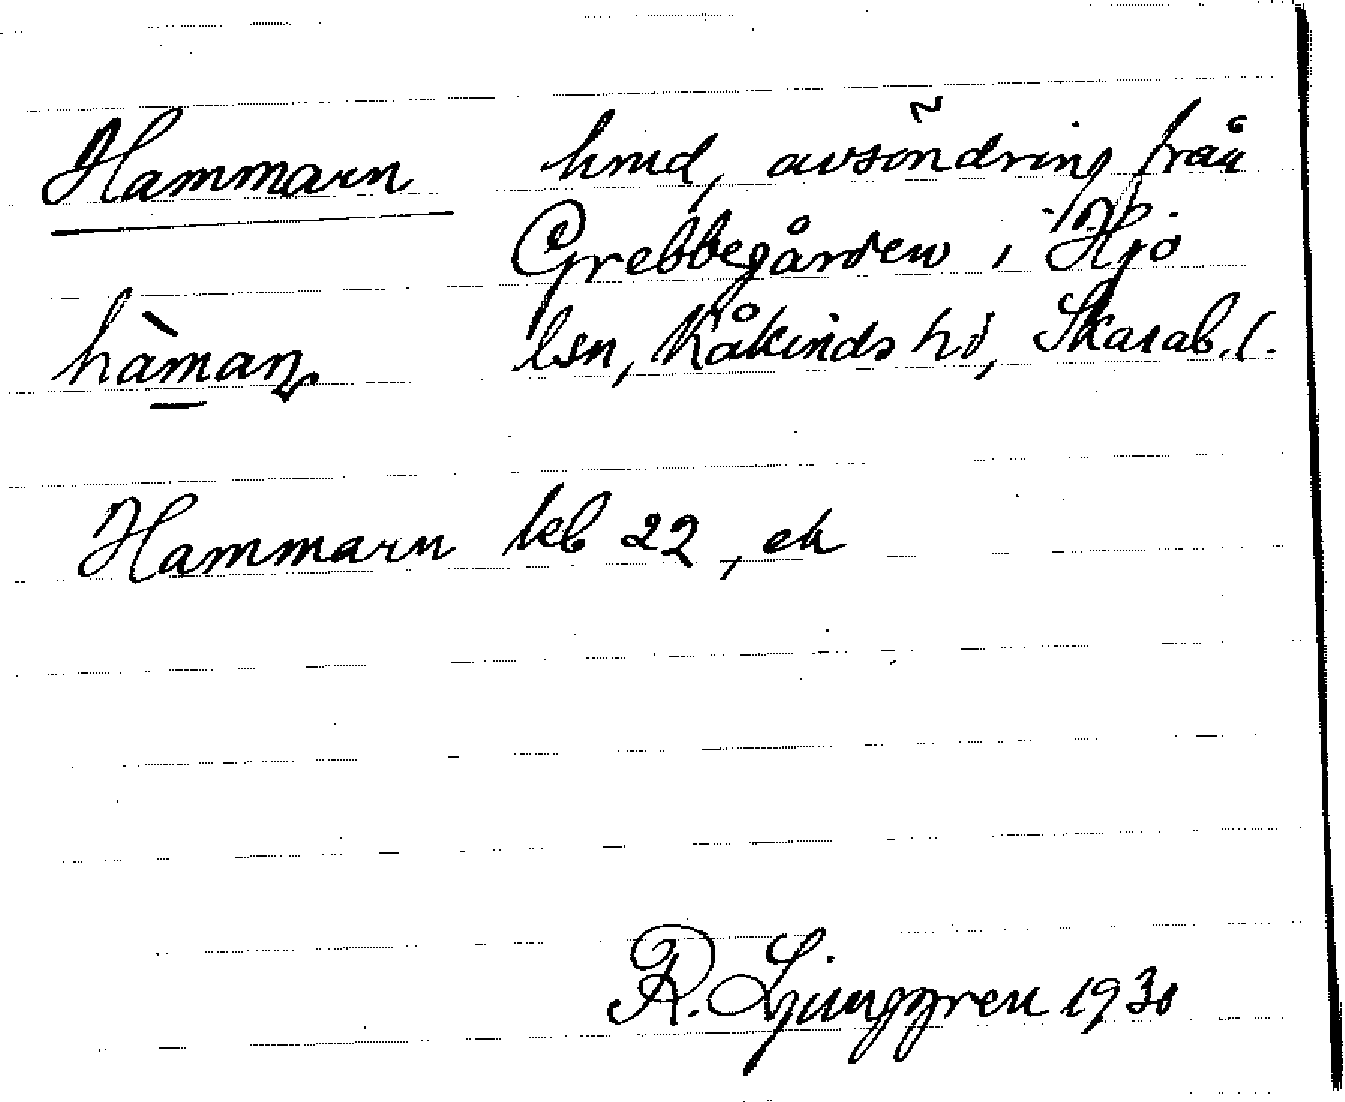 Hammarn hmd, avsöndring från
Grebbegården i Hjo
hàman lsn, Kåkinds hd, Skarab. l.
Hammarn kb 22, ek
R. Ljunggren 1930